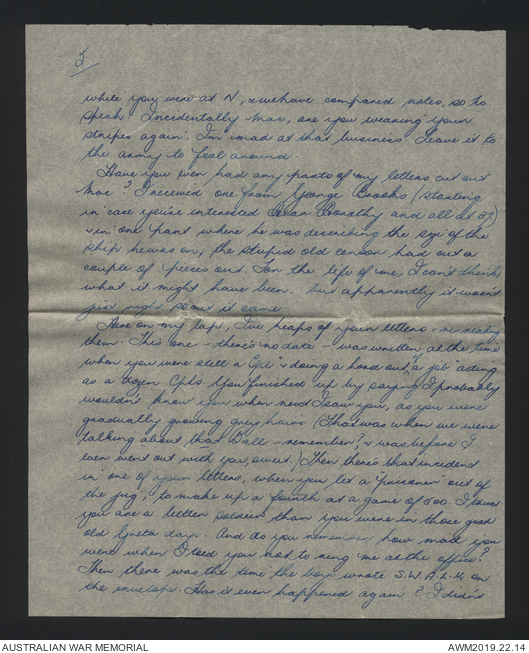 5
while you were at N, & we have compared notes, so to
speak. Incidentally Mac, are you wearing your
stripes again. I'm mad at that business. Leave it to
the army to fool around.
Have you ever had any parts of my letters cut out
Mac? I received one from George Brooks (starting
in case you're interested Dear Dorothy and all at 37)
& in one part where he was describing the size of the
ship he was on, the stupid old censor had cut a
couple of pieces out. For the life of me, I can't think
what it might have been. but apparently it wasn't
just right so out it came
Here on my lap, I've heaps of your letters - re reading
them. This one - there's no date - was written, at the time
when you were still a Cpl & doing a hard out a job acting
as a dozen Cpls. You finished up by saying I probably
wouldn't know you when next I saw you, as you were
gradually growing grey hairs (That was when we were
talking about that Ball - remember? & was before I
even went out with you, sweet.) Then there's that incident
in one of your letters, when you let a "prisoner" out of
the jug, to make up a fourth at a game of 500. I
you are a better soldier than you were in those good
old Greta days. And do you remember how mad you
were when I told you not to ring me at the office?
Then there was the time the boys wrote S.W.A.L.K on
the envelope. Has it ever happened again? I didn't
AUSTRALIAN WAR MEMORIAL
AWM2019.22.14